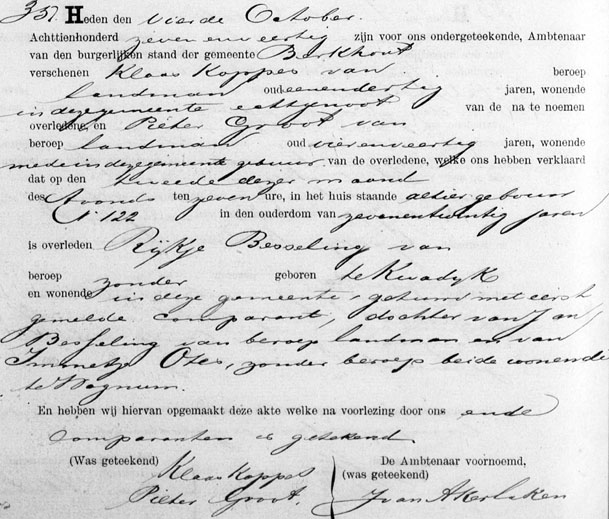 35. Heden den vierde October.
Achttienhonderd zeven en veertig zijn voor ons ondergeteekende, Ambtenaar
van den burgerlijken stand der gemeente Berkhout
verschenen Klaas Koppes van beroep
landman oud eenendertig jaren, wonende
in deze gemeente echtgenoot van de na te noemen
overledene, en Pieter Groot van
beroep landman oud vierenveertig jaren, wonende
mede in deze gemeente gebuur van de overledene, welke ons hebben verklaard
dat op den tweede dezer maand
des Avonds ten zeven ure, in het huis staande alhier gebuur
N 122 in den ouderdom van zevenentwintig jaren
is overleden Rijkje Besseling van
beroep zonder geboren te Kwadyk
en wonende in deze gemeente, gehuwd met eerst
gemelde comparant, dochter van Jan
Besseling van beroep landman en van
Immetje Otes, zonder beroep beide wonende
te Wognum.
En hebben wij hiervan opgemaakt deze akte welke na voorlezing door ons ende
Comparanten is getekend
(Was geteekend) De Ambtenaar voornoemd,
Klaas Koppes (was geteekend)
Pieter Groot. J van Akerlaken